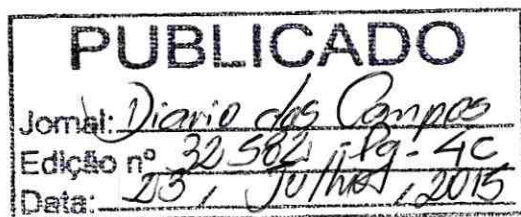 PUBLICADO
Jornal: Diario dos Campos
Edição nº 32582 - Pg - 4C
Data: 23 / Julho / 2015